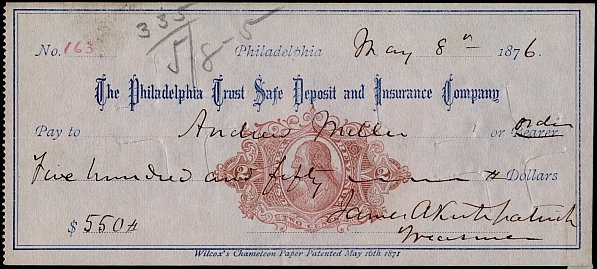 335
5/8-5
No. 163 Philadelphia May 8th 1876.
The Philadelphia Trust Safe Deposit and Insurance Company
Pay to Andrew Miller or Bearer order
Five hundred and fifty Dollars
$550
James A Kirkpatrick
Treasurer
Wilcox's Chameleon Paper Patented May 16th 1871